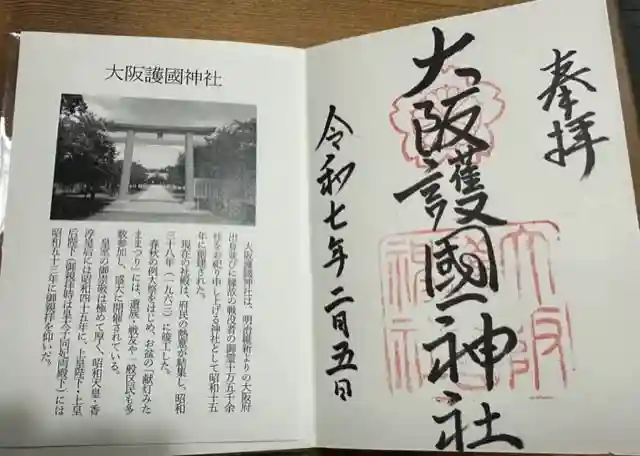 奉拝
大阪護國神社
令和七年二月五日
大阪護國神社
大阪護國神社は、明治維新よりの大阪府
出身並びに縁故の戦没者の御霊十万五千余
柱をお祀り申し上げる神社として昭和十五
年に創建された。
現在の社殿は、府民の熱意が結集し、昭和
三十八年(一九六三)に竣工した。
春秋の例大祭をはじめ、お盆の「献灯みた
ままつり」には、遺族・戦友や一般区民も多
数参加し、盛大に開催されている。
皇室の御崇敬は極めて厚く、昭和天皇・香
淳皇后には昭和四十五年に、上皇陛下・上皇
后陛下(御親拝時は皇太子同妃両殿下)には
昭和五十三年に御親拝を仰いだ。